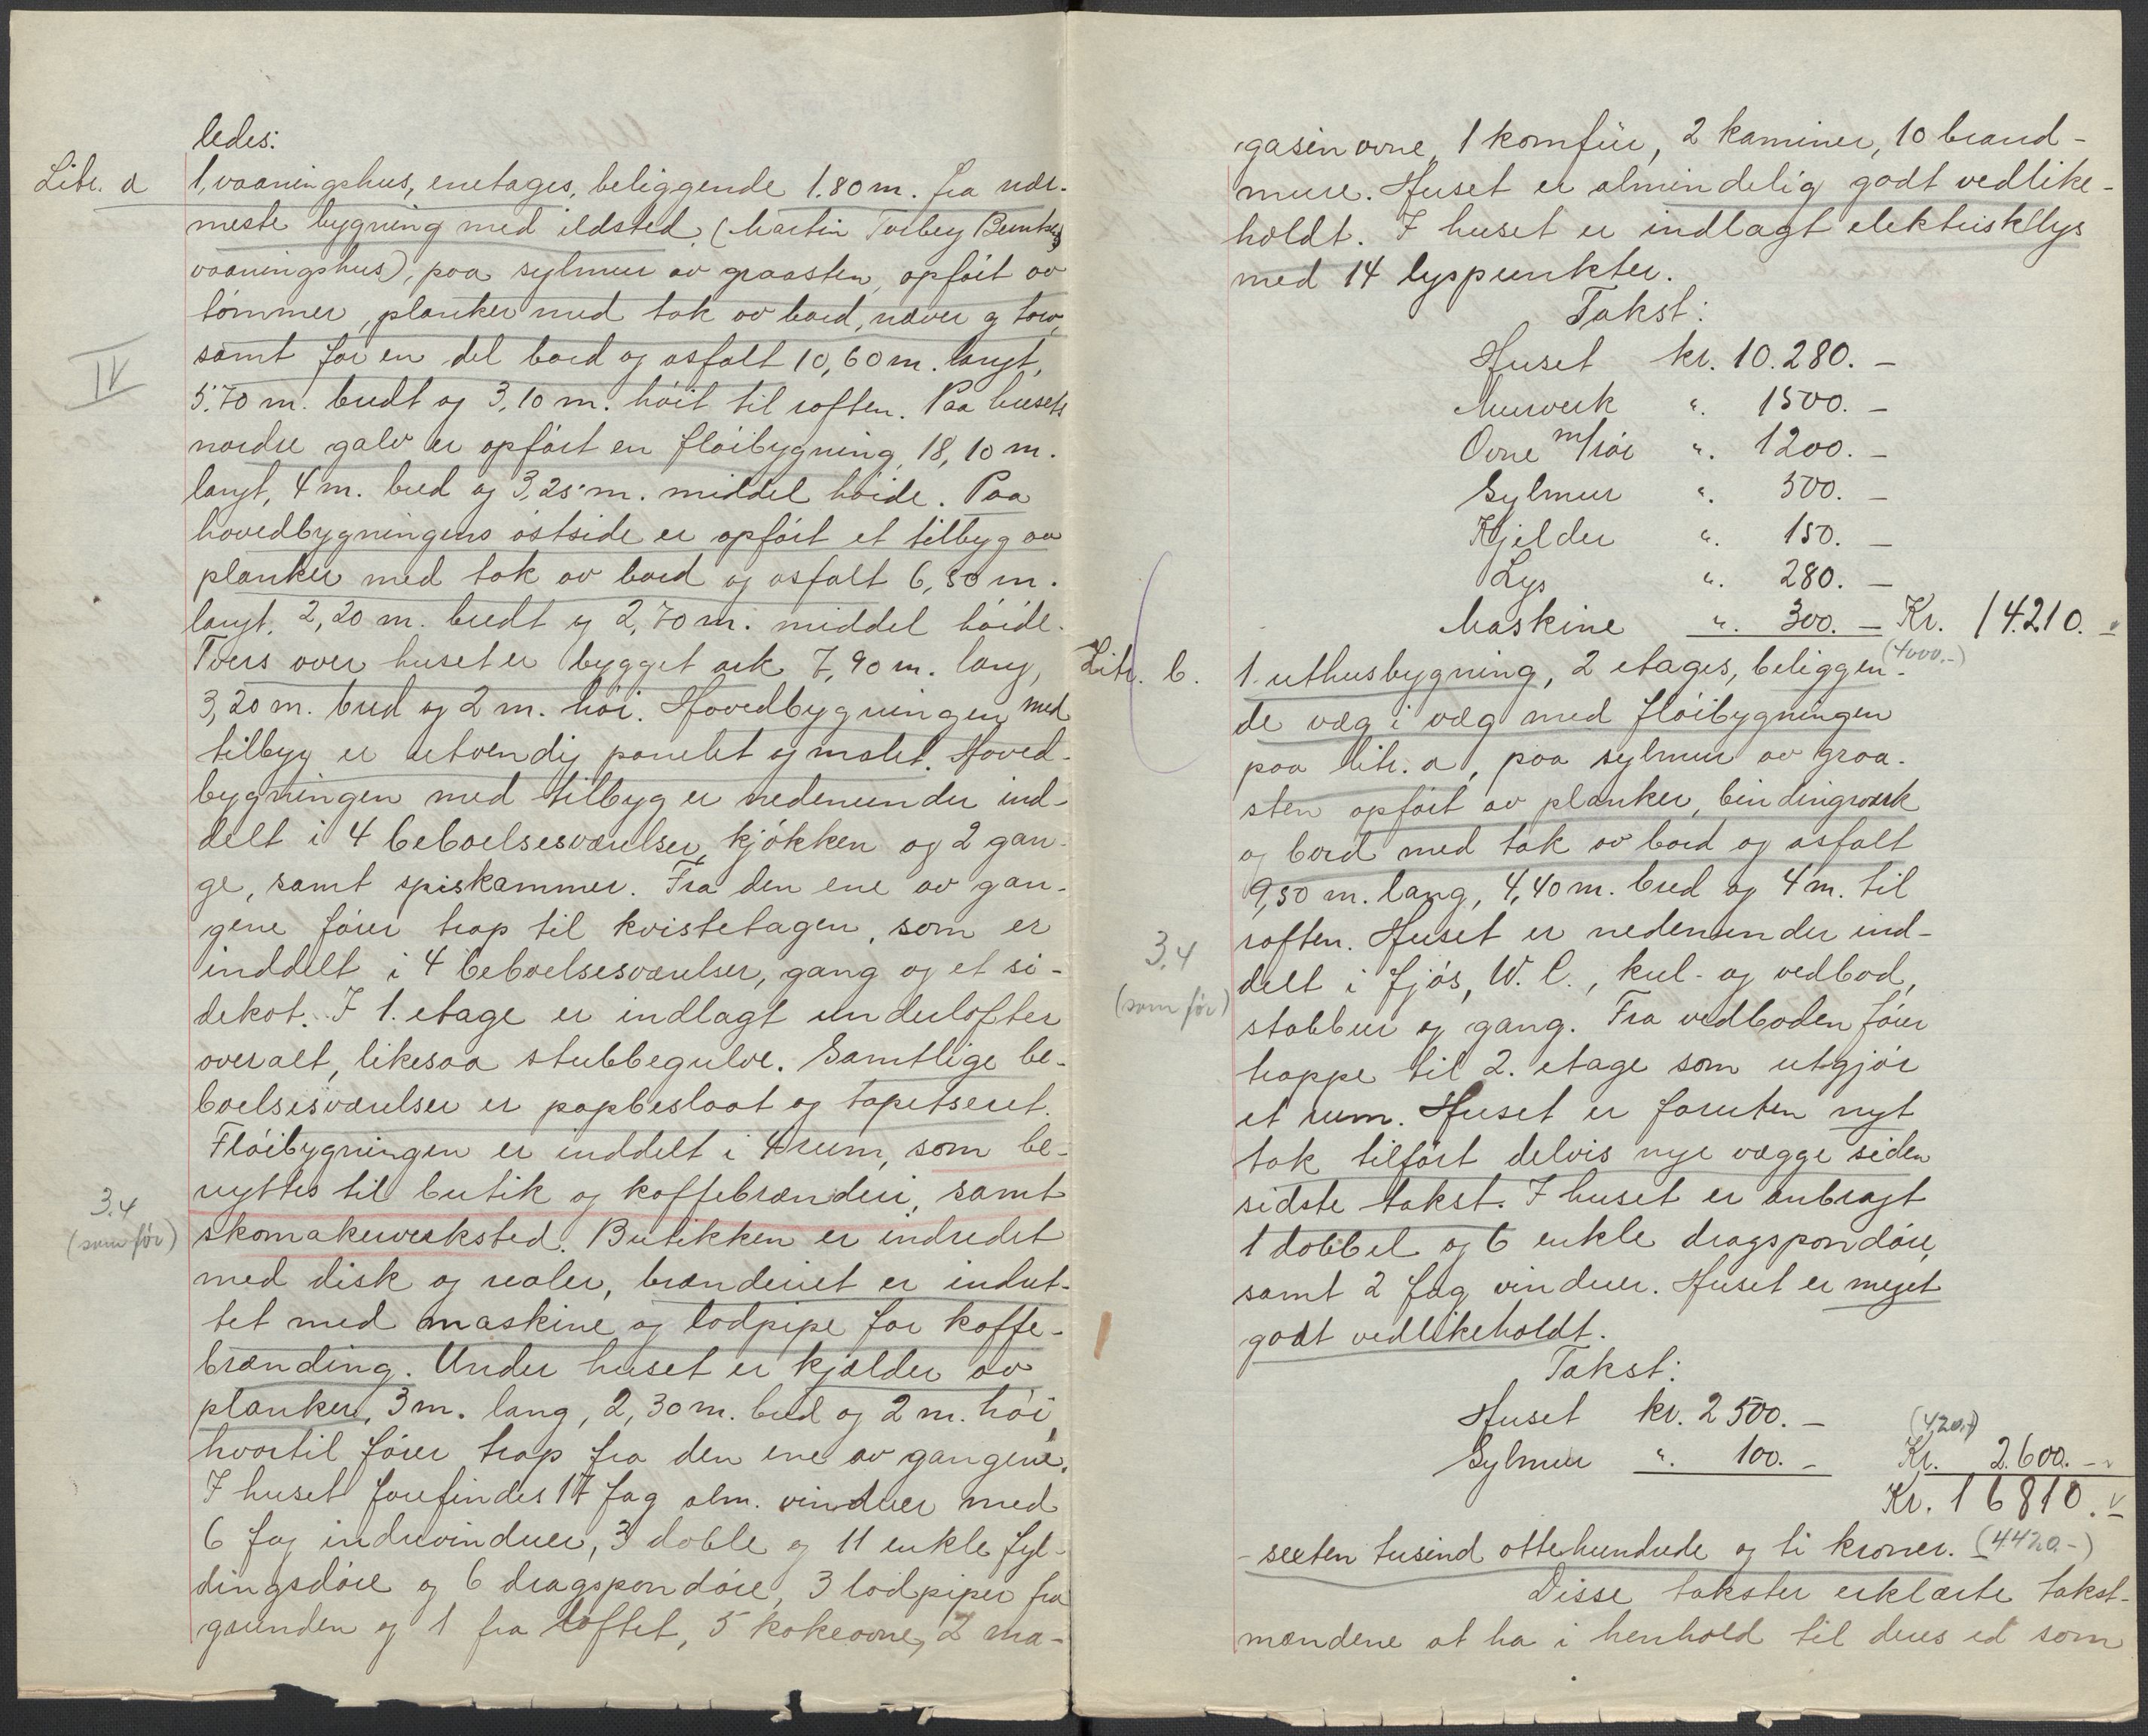 ledes:
Litr. a 1. vaaningshus, enetages, beliggende 1.80 m. fra nær-
meste bygning med ildsted (Martin Torberg
vaaningshus), paa sylmur av graasten, opført av
tømmer, planker med tak av bord, næver og torv,
IV
samt for en del bord og asfalt 10,60 m. langt,
5.70 m. bredt og 3,10 m. høit til roften. Paa husets
nordre galv er opført en fløibygning, 18,10 m.
langt, 4 m. bred og 3,25 m. middel høide. Paa
hovedbygningens østside er opført et tilbyg av
planker med tak av bord og asfalt 6,50 m.
langt, 2,20 m. bredt og 2,70 m. middel høide.
Tvers over huset er bygget ark 7,90 m. lang,
3,20 m. bred og 2 m. høi. Hovedbygningen med
tilbyg er utvendig panelet og malet. Hoved-
bygningen med tilbyg er nedenunder ind-
delt i 4 beboelsesværelser, kjøkken og 2 gan-
ge, samt spiskammer. Fra den ene av gan-
gene fører trap til kvistetagen, som er
inddelt i 4 beboelsesværelser, gang og et si-
dekot. I 1. etage er indlagt underlofter
overalt, likesaa stubbegulve. Samtlige be-
boelsesværelser er papbeslaat og tapetseret.
Fløibygningen er inddelt i 4 rum, som be-
nyttes til butik og kaffebrænderi, samt
3.4
(som før)
skomakerverksted. Butikken er indredet
med disk og realer, brænderiet er indret-
tet med maskine og lodpipe for kaffe-
brænding. Under huset er kjælder av
planker, 3 m. lang, 2,30 m. bred og 2 m. høi,
hvortil fører trap fra den ene av gangene.
I huset forefindes 17 fag alm. vinduer med
6 fag indrevinduer, 3 doble og 11 enkle fyl-
dingsdøre og 6 dragspondøre, 3 lodpiper fra
grunden og 1 fra loftet, 5 kokeovne, 2 ma-
gasinovne, 1 komfür, 2 kaminer, 10 brand-
mure. Huset er almindelig godt vedlike-
holdt. I huset er indlagt elektrisk lys
med 14 lyspunkter.
Takst:
Huset kr. 10.280. —
Murverk ". 1500. —
Ovne m/rør ". 1200. —
Sylmur ". 500. —
Kjelder ". 150. —
Lys ". 280. —
Maskine ". 300. — Kr. 14.210. —
(4000.-)
Litr. b. 1. uthusbygning, 2 etages, beliggen-
de væg i væg med fløibygningen
paa litr. a, paa sylmur av graa-
sten opført av planker, bindingsverk
og bord med tak av bord og asfalt
9,50 m. lang, 4,40 m. bred og 4 m. til
roften. Huset er nedenunder ind-
3.4
delt i fjøs, W. C., kul- og vedbod,
(som før)
stabbur og gang. Fra vedboden fører
trappe til 2. etage som utgjør
et rum. Huset er foruten nyt
tak tilført delvis nye vægge siden
sidste takst. I huset er anbragt
1 dobbel og 6 enkle dragspondøre,
samt 2 fag vinduer. Huset er meget
godt vedlikeholdt.
Takst:
Huset kr. 2500. —
(420.-)
Sylmur ". 100. — Kr. 2.600. —
Kr. 16810. —
- sexten tusind ottehundrede og ti kroner. (4420.-)
Disse takster erklærte takst-
mændene at ha i henhold til deres ed som